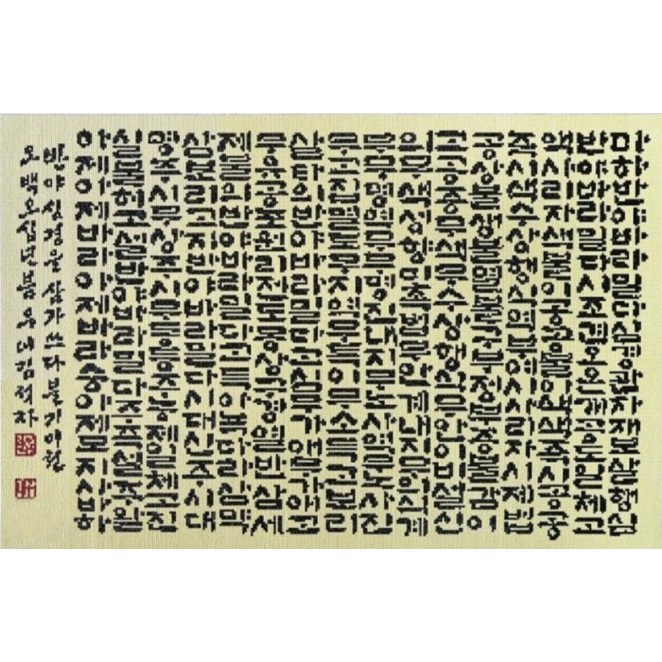 마하반야바라밀다심경관자재보살행심
반야바라밀다시조견오온개공도일체고
액사리자색불이공공불이색색즉시공공
즉시색수상행식역부여시사리자시제법
공상불생불멸불구부정부증불감시
고공중무색무수상행식무안이비설신
의무색성향미촉법무안계내지무의식계
무무명역무무명진내지무노사역무노사진
무고집멸도무지역무득이무소득고보리
살타의반야바라밀다고심무가애무가애고
무유공포원리전도몽상구경열반삼세
제불의반야바라밀다고득아뇩다라삼먁
삼보리고지반야바라밀다시대신주시대
명주시무상주시무등등주능제일체고진
실불허고설반야바라밀다주즉설주왈
아제아제바라아제바라승아제모지사바하
반야심경을 삼가 쓰다 불기이천
오백오십년봄